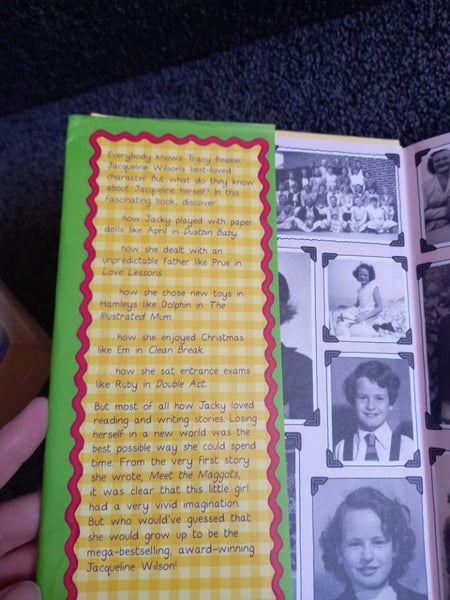 Everybody knows Tracy Beaker,
Jacqueline Wilson's best-loved
character. But what do they know
about Jacqueline herself? In this
fascinating book, discover
. . . how Jacky played with paper
dolls like April in Dustbin Baby.
. . . how she dealt with an
unpredictable father like Prue in
Love Lessons.
. . . how she chose new toys in
Hamleys like Dolphin in The
Illustrated Mum.
. . . how she enjoyed Christmas
like Em in Clean Break.
. . . how she sat entrance exams
like Ruby in Double Act.
But most of all how Jacky loved
reading and writing stories. Losing
herself in a new world was the
best possible way she could spend
time. From the very first story
she wrote, Meet the Maggots,
it was clear that this little girl
had a very vivid imagination.
But who would've guessed that
she would grow up to be the
mega-bestselling, award-winning
Jacqueline Wilson!